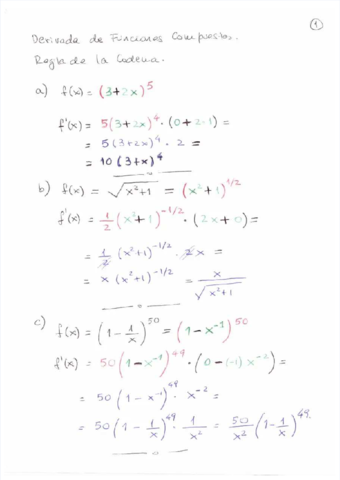 1
Derivada de Funciones Compuestas.
Regla de la Cadena.
a) f(x) = (3+2x)^5
f'(x) = 5(3+2x)^4 · (0+2·1) =
= 5(3+2x)^4 · 2 =
= 10(3+x)^4
b) f(x) = √(x²+1) = (x²+1)^1/2
f'(x) = 1/2 (x²+1)^-1/2 · (2x+0) =
= 1/2 (x²+1)^-1/2 · 2x =
= x (x²+1)^-1/2 = x/√(x²+1)
c) f(x) = (1 - 1/x)^50 = (1-x^-1)^50
f'(x) = 50(1-x^-1)^49 · (0-(-1)x^-2) =
= 50(1-x^-1)^49 · x^-2 =
= 50(1-1/x)^49 · 1/x² = 50/x² (1-1/x)^49.